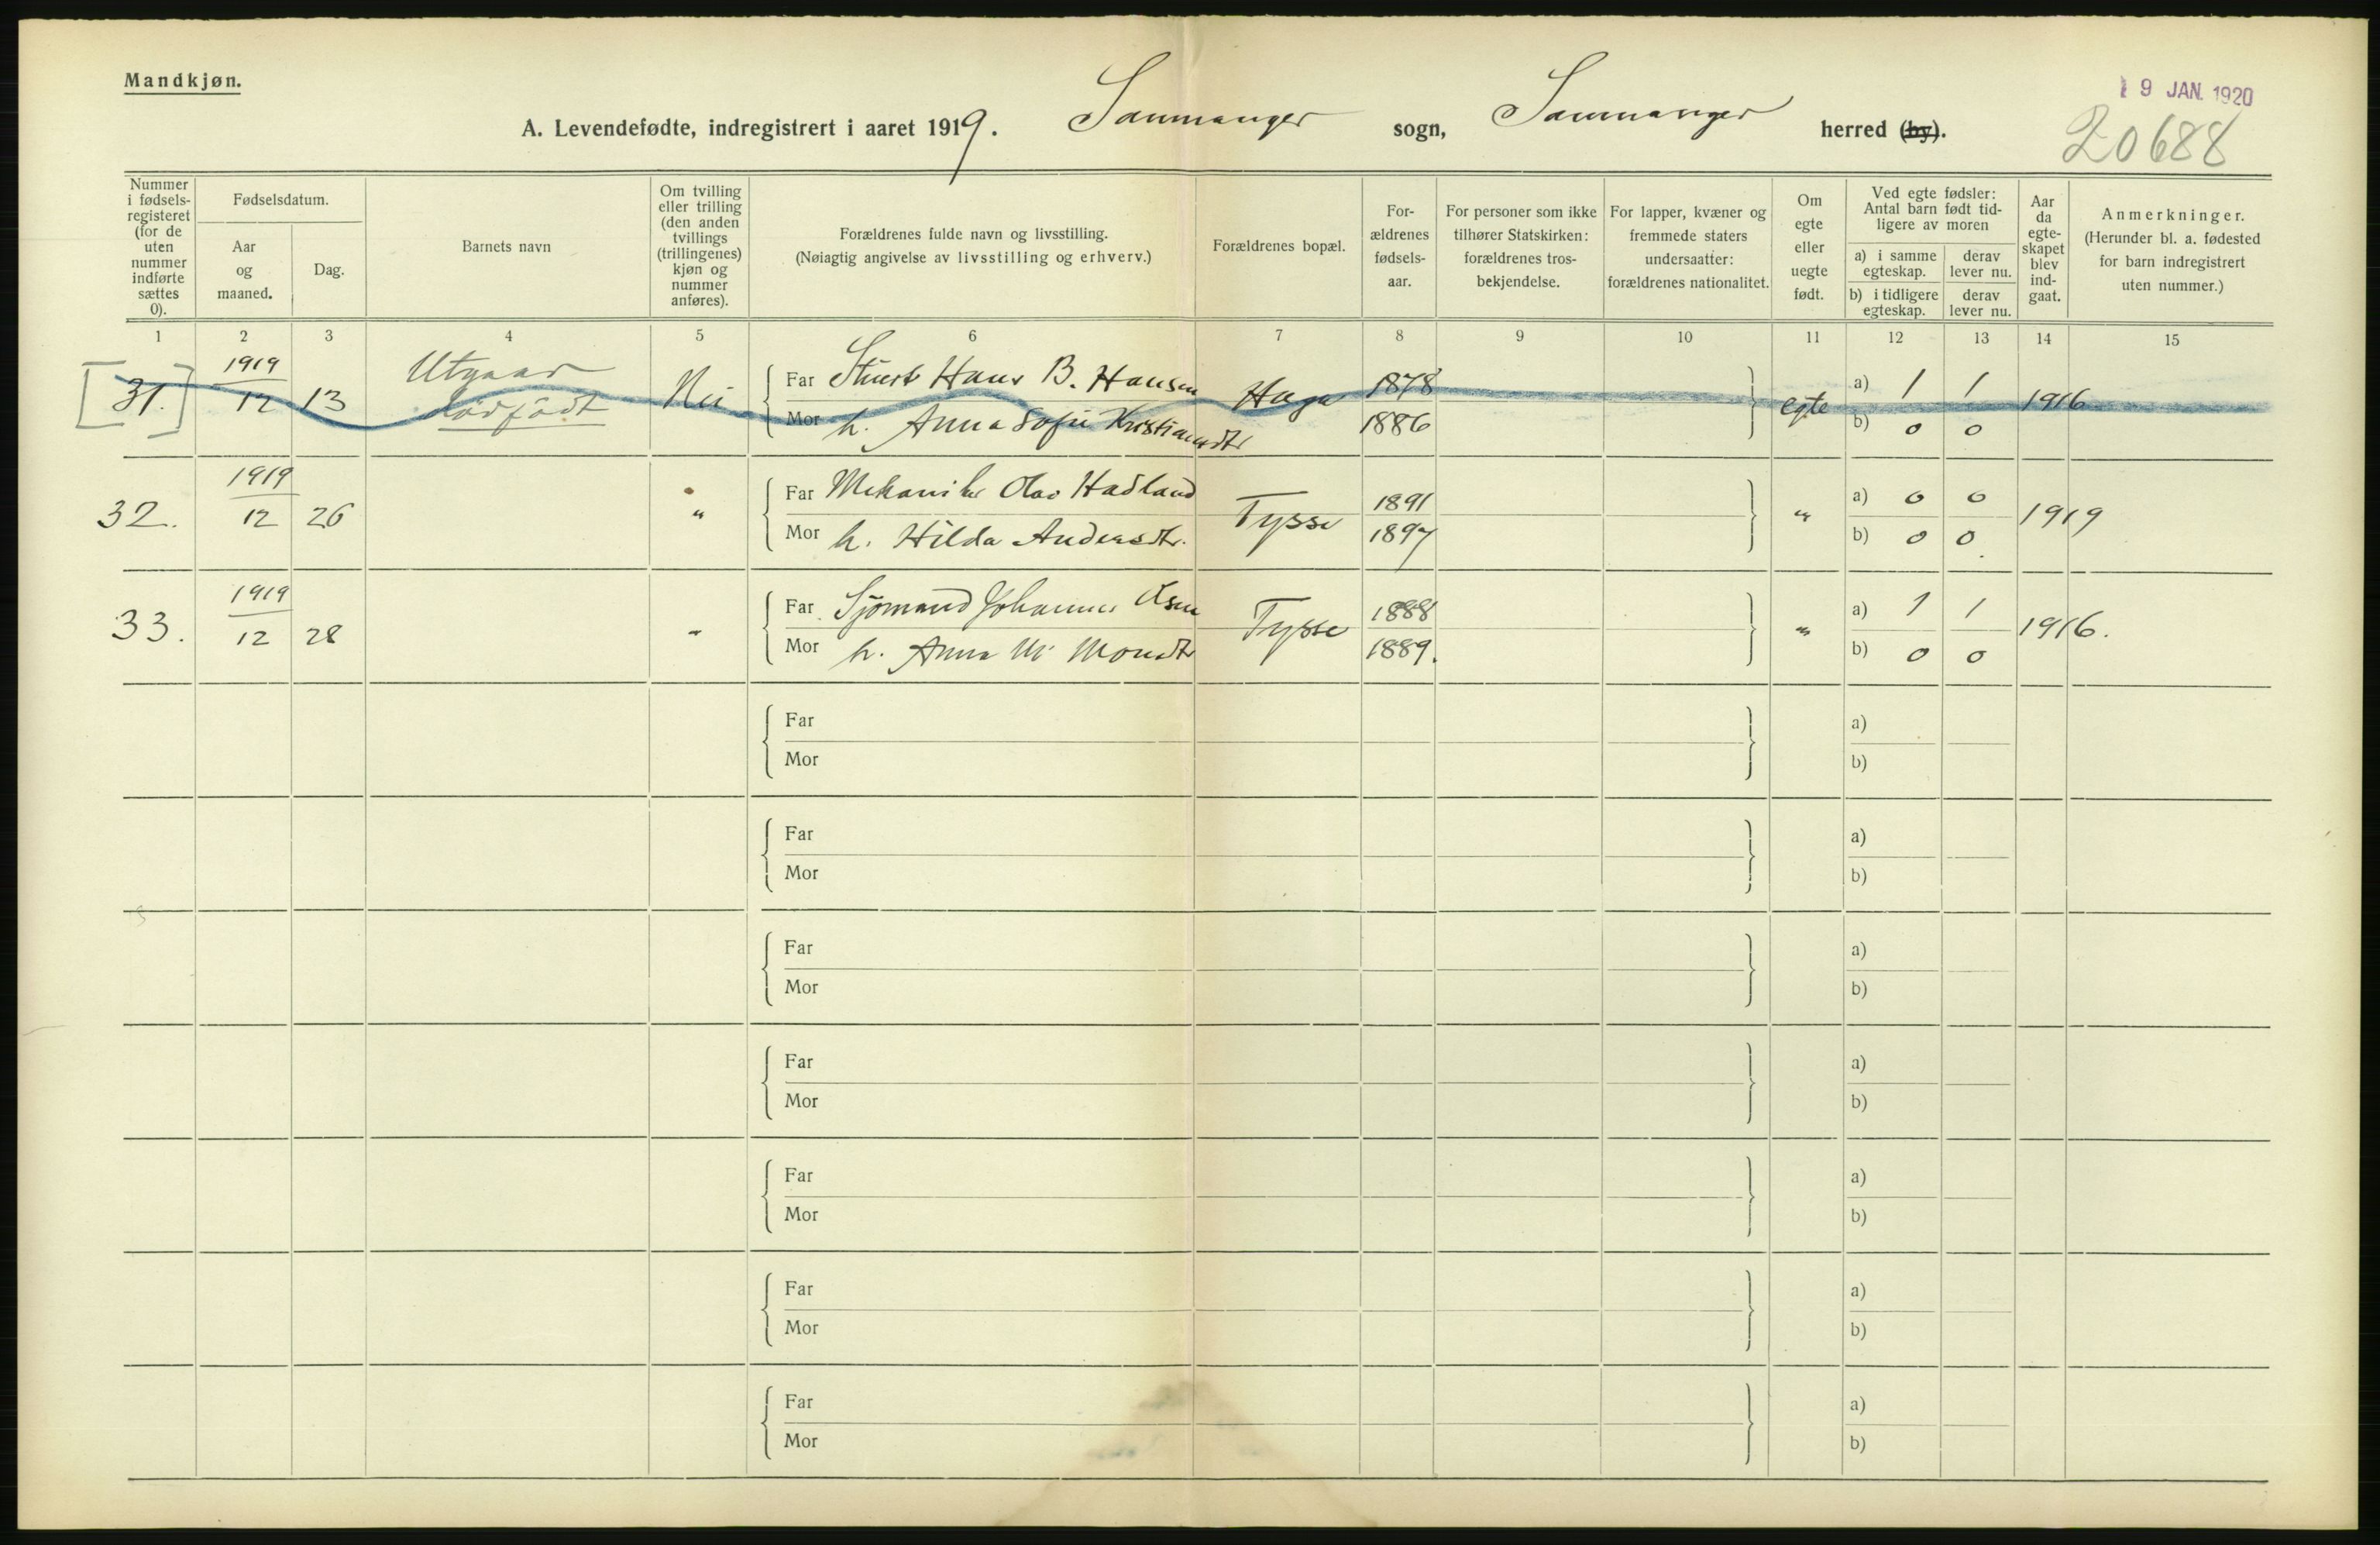 Mandkjøn.
19 JAN. 1920
A. Levendefødte, indregistrert i aaret 1919. Samnanger sogn, Samnanger herred (by).
20688
Nummer i fødsels-registeret (for de uten nummer indførte sættes 0).
Fødselsdatum.
Aar og maaned.
Dag.
Barnets navn
Om tvilling eller trilling (den anden tvillings (trillingenes) kjøn og nummer anføres).
Forældrenes fulde navn og livsstilling.
(Nøiagtig angivelse av livsstilling og erhverv.)
Forældrenes bopæl.
For-ældrenes fødsels-aar.
For personer som ikke tilhører Statskirken: forældrenes tros-bekjendelse.
For lapper, kvæner og fremmede staters undersaatter: forældrenes nationalitet.
Om egte eller uegte født.
Ved egte fødsler: Antal barn født tid-ligere av moren
a) i samme egteskap.
derav lever nu.
b) i tidligere egteskap.
derav lever nu.
Aar da egte-skapet blev ind-gaat.
Anmerkninger.
(Herunder bl. a. fødested for barn indregistrert uten nummer.)
1 2 3 4 5 6 7 8 9 10 11 12 13 14 15
[31.] 1919 12 13 Utgaar dødfødt Nei
Far Hans B. Hansen Haga 1878 egte a) 1 1 1916
Mor h. Anna Sofie Kristiansdtr 1886 b) 0 0
32. 1919 12 26 "
Far Mekaniker Olav Hadland Tysse 1891 " a) 0 0 1919
Mor h. Hilda Andersdtr. 1897 b) 0 0
33. 1919 12 28 "
Far Sjømand Johannes Olsen Tysse 1888 " a) 1 1 1916.
Mor h. Anna M. Monsdtr 1889. b) 0 0
Far a)
Mor b)
Far a)
Mor b)
Far a)
Mor b)
Far a)
Mor b)
Far a)
Mor b)
Far a)
Mor b)
Far a)
Mor b)